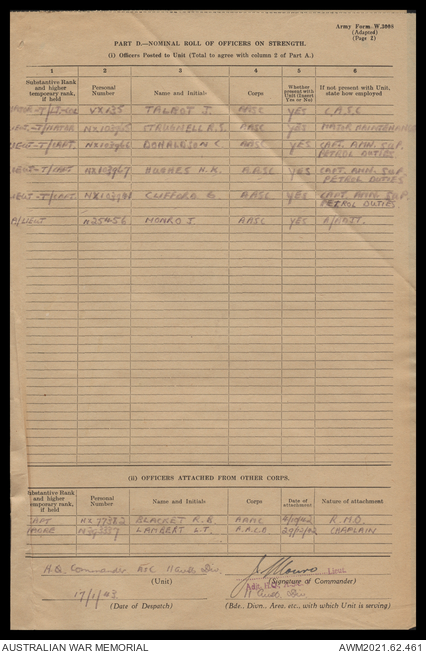 Army Form W.3008
(Adapted)
(Page 2)
PART D.—NOMINAL ROLL OF OFFICERS ON STRENGTH.
(i) Officers Posted to Unit (Total to agree with column 2 of Part A.)
1 2 3 4 5 6
Substantive Rank and higher temporary rank, if held Personal Number Name and Initials Corps Whether present with Unit (Insert Yes or No) If not present with Unit, state how employed
VX135 TALBOT J. AASC YES C.A.S.C
STRUGNELL R.S. AASC YES MAJOR MAINTENANCE
DONALDSON C AASC YES CAPT. AMN. SUP.
PETROL DUTIES
HUGHES H.K. AASC YES CAPT. AMN. SUP.
PETROL DUTIES
CLIFFORD G. AASC YES CAPT. AMN. SUP.
PETROL DUTIES
N25456 MONRO J. AASC YES A/ADJT.
(ii) OFFICERS ATTACHED FROM OTHER CORPS.
Substantive Rank and higher temporary rank, if held Personal Number Name and Initials Corps Date of attachment Nature of attachment
CAPT NX77382 BLACKET R.B. AAMC R.M.O.
LAMBERT L.T. 29/12/42 CHAPLAIN
H.Q. Commander AASC 11 Aust. Div. Lieut
(Unit) (Signature of Commander)
17/1/43 11 Aust. Div
(Date of Despatch) (Bde., Divn., Area, etc., with which Unit is serving)
AUSTRALIAN WAR MEMORIAL AWM2021.62.461